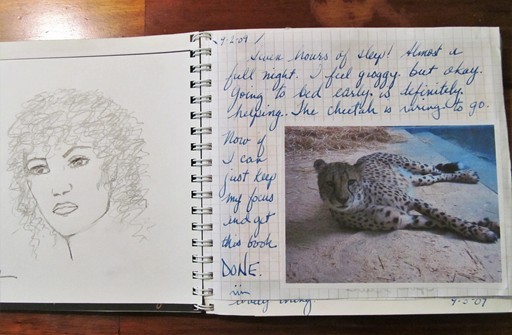 4-2-09
Seven hours of sleep! Almost a
full night. I feel groggy. but okay.
Going to bed early is definitely
helping. The cheetah is raring to go.
Now if
I can
just keep
my focus
and get
this book
DONE.
4-3-09